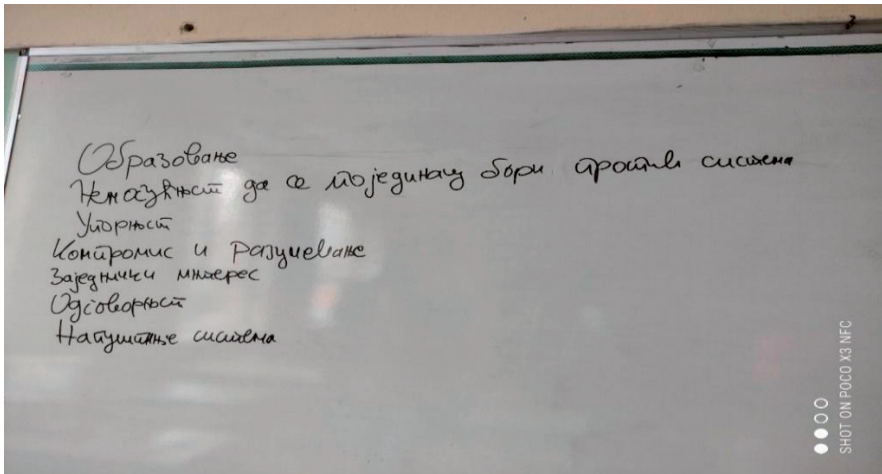 Образовање
Немогућност да се појединац бори против система
Упорност
Компромис и разумевање
Заједнички интерес
Одговорност
Напуштање система
SHOT ON POCO X3 NFC